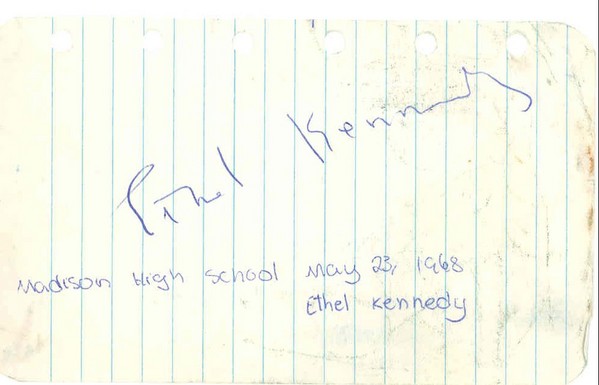 Ethel Kennedy
Madison High School May 23, 1968
Ethel Kennedy